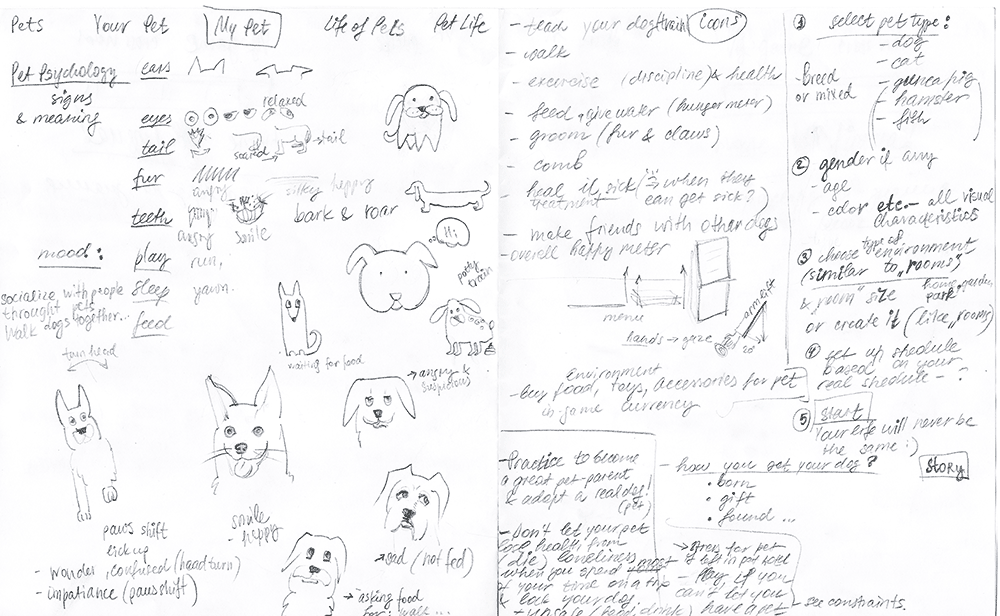 Pets Your Pet My Pet Life of Pets Pet Life
Pet Psychology
signs
& meaning
ears
eyes
relaxed
tail
scared
tail
fur
angry
silky happy
teeth
angry
smile
bark & roar
mood:
play
run,
sleep
yawn.
feed
socialize with people
throught pets
Walk dogs together...
Hi!
potty
train
waiting for food
→ angry &
suspicious
turn head
paws shift
lick up
- wonder, confused (head turn)
- impatiance (paws shift)
smile
- happy
→ sad (not fed)
→ asking food
for walk...
- teach your dog (train) icons
- walk
- exercise (discipline) & health
- feed, give water (hunger meter)
- groom (fur & claws)
- comb
- heal if sick (when they
treatment can get sick?)
- make friends with other dogs
- overall happy meter
menu
hands → gaze
arm lift
20°
Environment
- buy food, toys, accessories for pet
in-game currency
- Practice to become
a great pet parent
& adopt a real dog!
(pet)
- Don't let your pet
loose health, from
(die) loneliness
when you spend most
of your time on a trip
& lock your dog.
- how you get your dog?
• born
• gift
• found ...
if left in pet hotel
- Play if you
can't let you
have a pet - see constraints
1 select pet type:
- dog
- cat
- guinea pig
- hamster
- fish
- breed
or mixed
2 gender if any
- age
- color etc. - all visual
characteristics
3 choose type of environment
(similar to „rooms")
& room" size home, garden,
park
or create it (like „rooms)
4 set up shedule
based on your
real shedule - ?
5 Start
Your life will never be
the same :)
Story